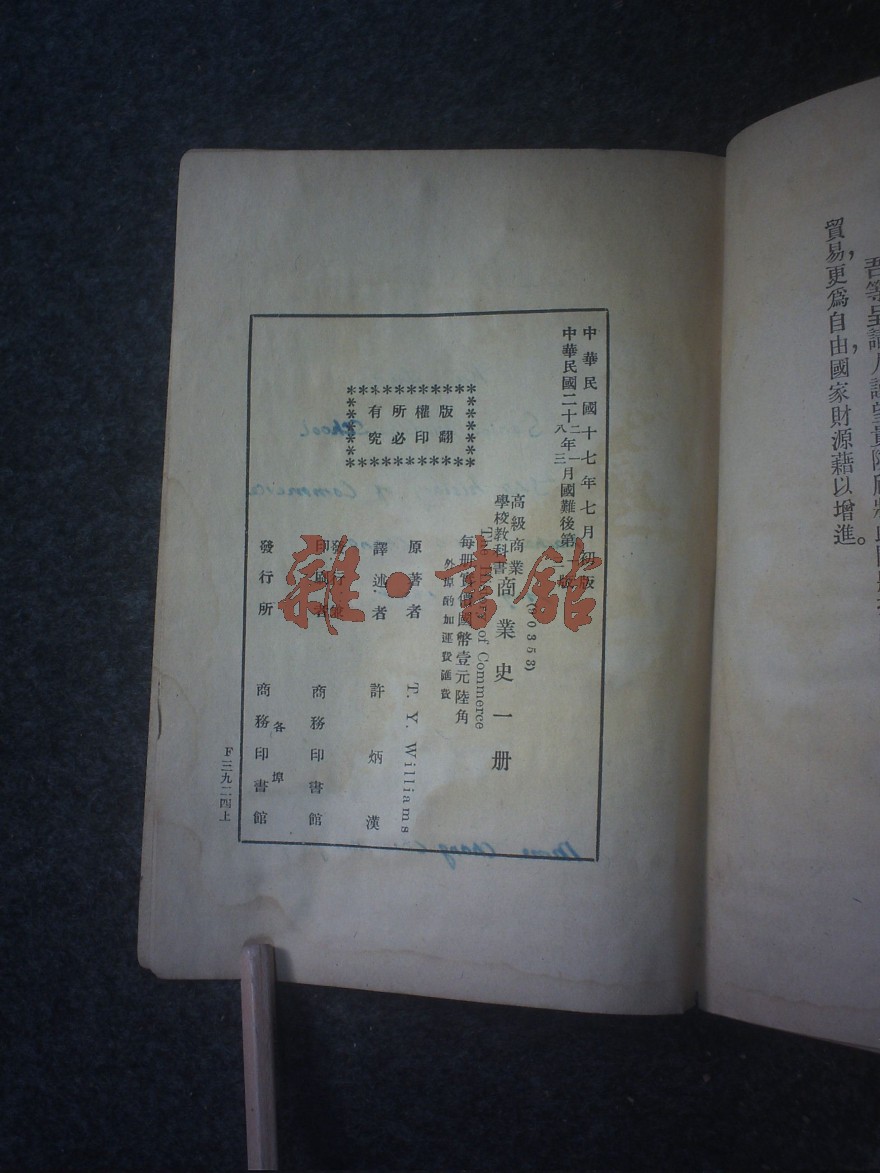 貿易，更爲自由，國家財源藉以增進。
中華民國十七年七月初版
中華民國二十二年一月國難後第
八 三 版
(60353)
高級商業學校教科書 商業史一册
The of Commerce
每册 價國幣壹元陸角
外埠酌加運費匯費
版權所有
翻印必究
原著者 T. Y. Williams
譯述者 許炳漢
發行兼印 者 商務印書館
發行所 各埠 商務印書館
F三九二四上
雜·書館